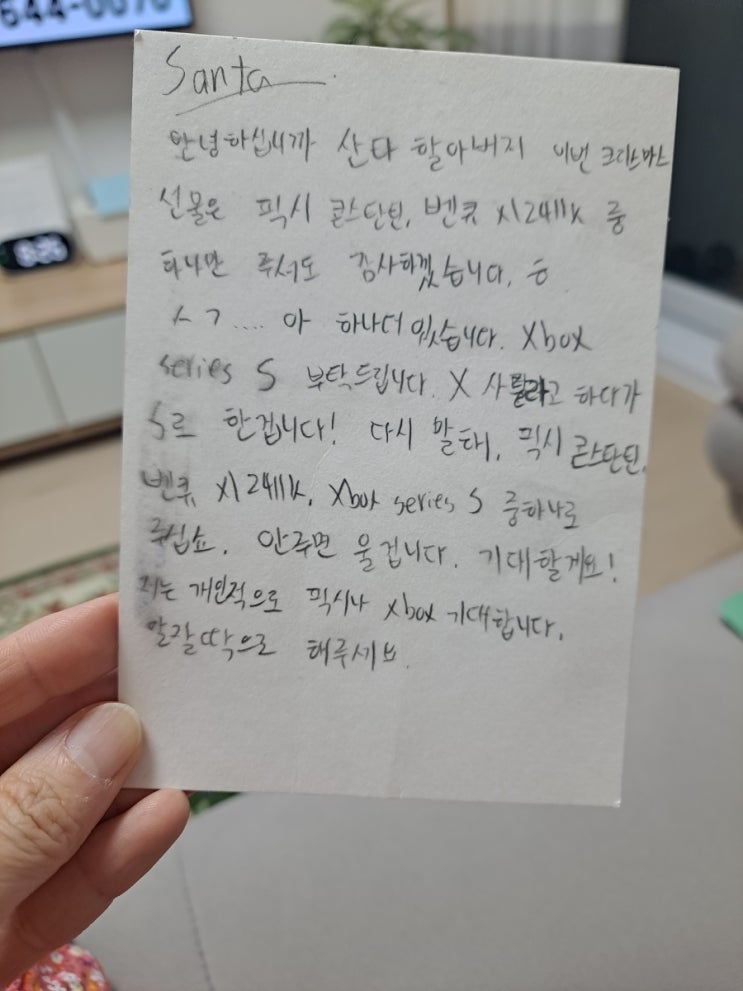 644-0070
Santa
안녕하십니까 산타 할아버지 이번 크리스마스
선물은 픽시 콘스탄틴, 벤큐 xl2411k 중
하나만 주셔도 감사하겠습니다. ㅎ
ㅅㄱ.... 아 하나더 있습니다. Xbox
series S 부탁드립니다. X 사달라고 하다가
S로 한겁니다! 다시 말해, 픽시 콘스탄틴,
벤큐 xl2411k, Xbox series S 중하나로
주십쇼. 안주면 울겁니다. 기대할게요!
저는 개인적으로 픽시나 xbox 기대합니다.
알잘딱으로 해주세요.